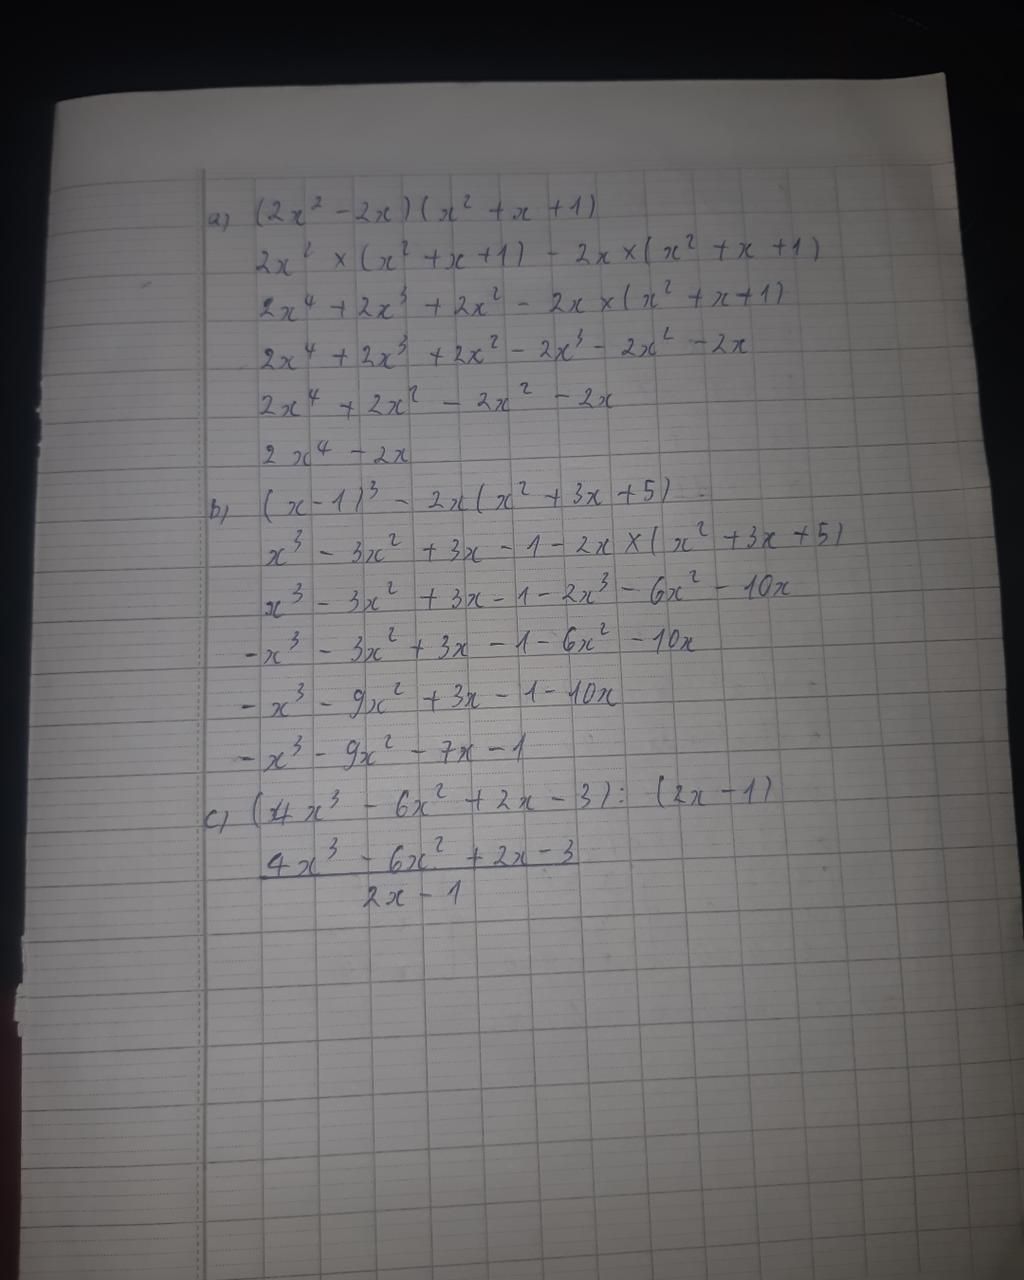 a) (2x² - 2x)(x² + x + 1)
2x² × (x² + x + 1) - 2x × (x² + x + 1)
2x⁴ + 2x³ + 2x² - 2x × (x² + x + 1)
2x⁴ + 2x³ + 2x² - 2x³ - 2x² - 2x
2x⁴ + 2x² - 2x² - 2x
2x⁴ - 2x
b) (x - 1)³ - 2x(x² + 3x + 5)
x³ - 3x² + 3x - 1 - 2x × (x² + 3x + 5)
x³ - 3x² + 3x - 1 - 2x³ - 6x² - 10x
-x³ - 3x² + 3x - 1 - 6x² - 10x
-x³ - 9x² + 3x - 1 - 10x
-x³ - 9x² - 7x - 1
c) (4x³ - 6x² + 2x - 3) : (2x - 1)
4x³ - 6x² + 2x - 3
2x - 1